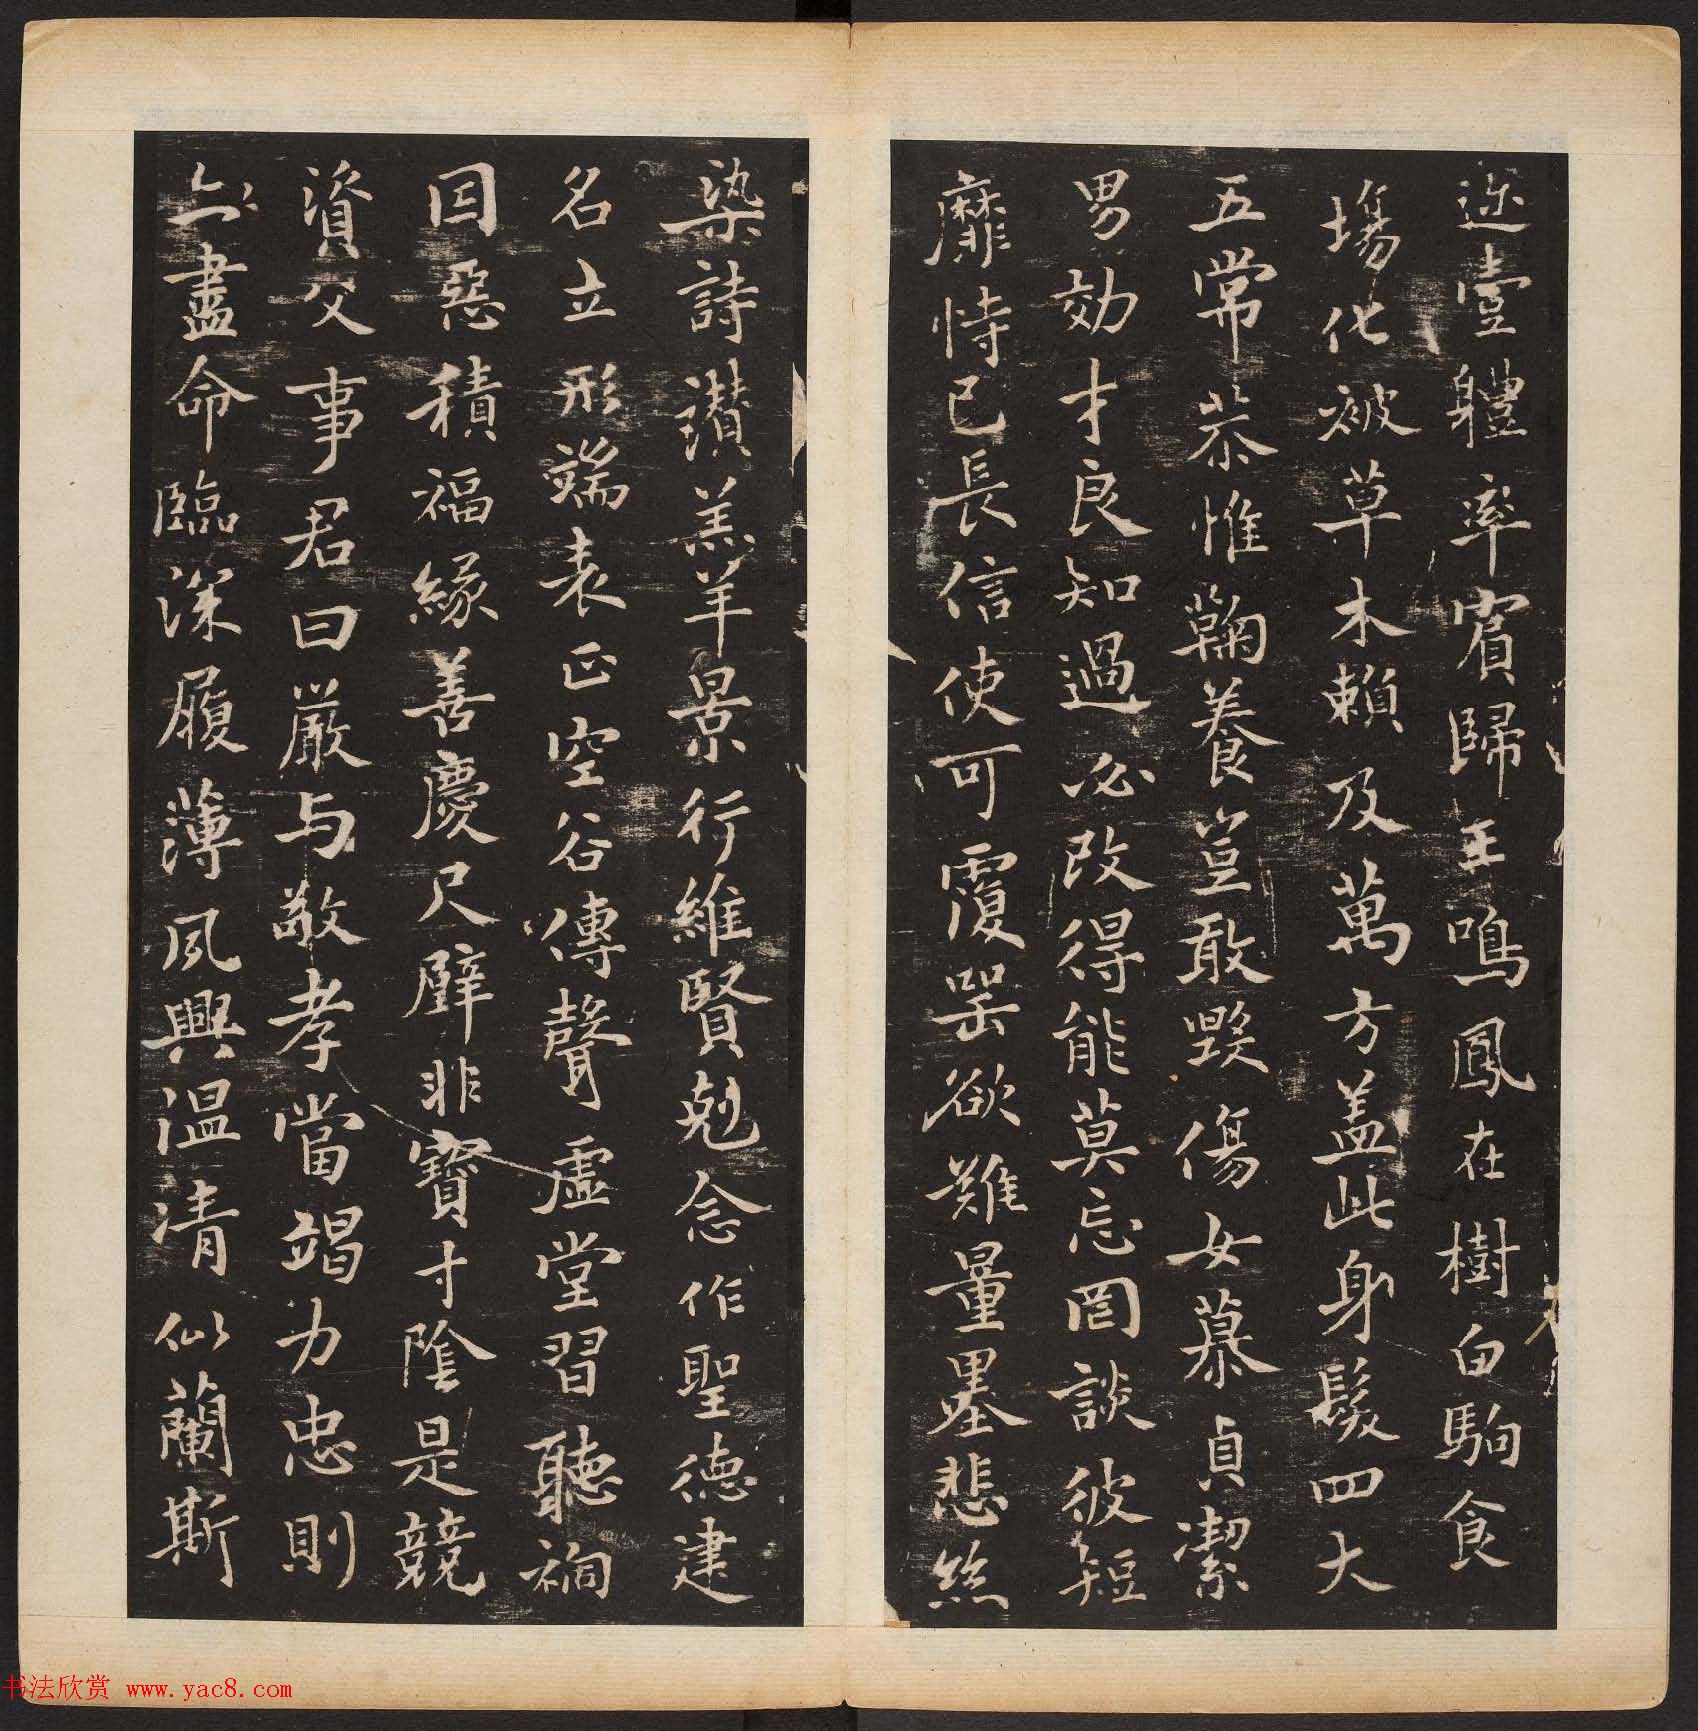 迩壹軆率賔歸王鳴鳳在樹白駒食
場化被草木賴及萬方盖此身髮四大
五常恭惟鞠養豈敢毀傷女慕貞潔
男効才良知過必改得能莫忘罔談彼短
靡恃已長信使可覆器欲難量墨悲絲
染詩讃羔羊景行維賢剋念作聖德建
名立形端表正空谷傳聲虛堂習聽禍
因惡積福緣善慶尺璧非寶寸陰是競
資父事君曰嚴与敬孝當竭力忠則
盡命臨深履薄夙興温凊似蘭斯
书法欣赏 www.yac8.com